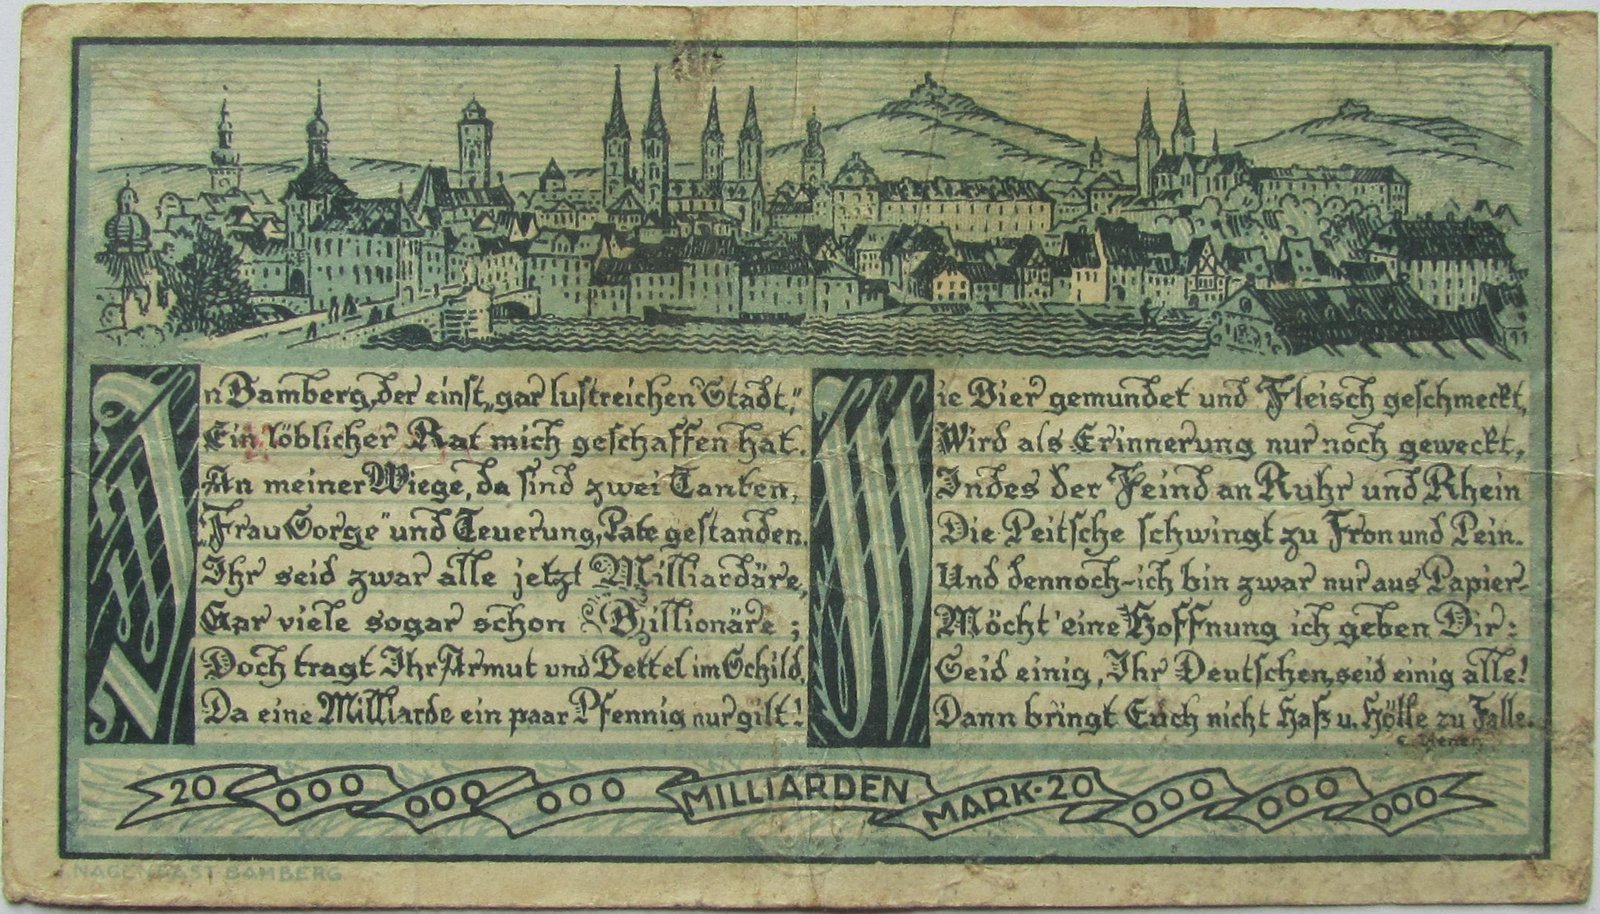 In Bamberg, der einst „gar lustreichen Stadt,“
Ein löblicher Rat mich geschaffen hat.
An meiner Wiege, da sind zwei Tanten,
„Frau Sorge“ und Teuerung, Pate gestanden.
Ihr seid zwar alle jetzt Milliardäre,
Gar viele sogar schon Billionäre;
Doch tragt Ihr Armut und Bettel im Schild,
Da eine Milliarde ein paar Pfennig nur gilt!
Wie Bier gemundet und Fleisch geschmeckt,
Wird als Erinnerung nur noch geweckt,
Indes der Feind an Ruhr und Rhein
Die Peitsche schwingt zu Fron und Pein.
Und dennoch-ich bin zwar nur aus Papier-
Möcht' eine Hoffnung ich geben Dir:
Seid einig, Ihr Deutschen, seid einig alle!
Dann bringt Euch nicht Haß u. Hölle zu Falle.
20 000 000 000 MILLIARDEN MARK·20 000 000 000
NAGENGAST BAMBERG